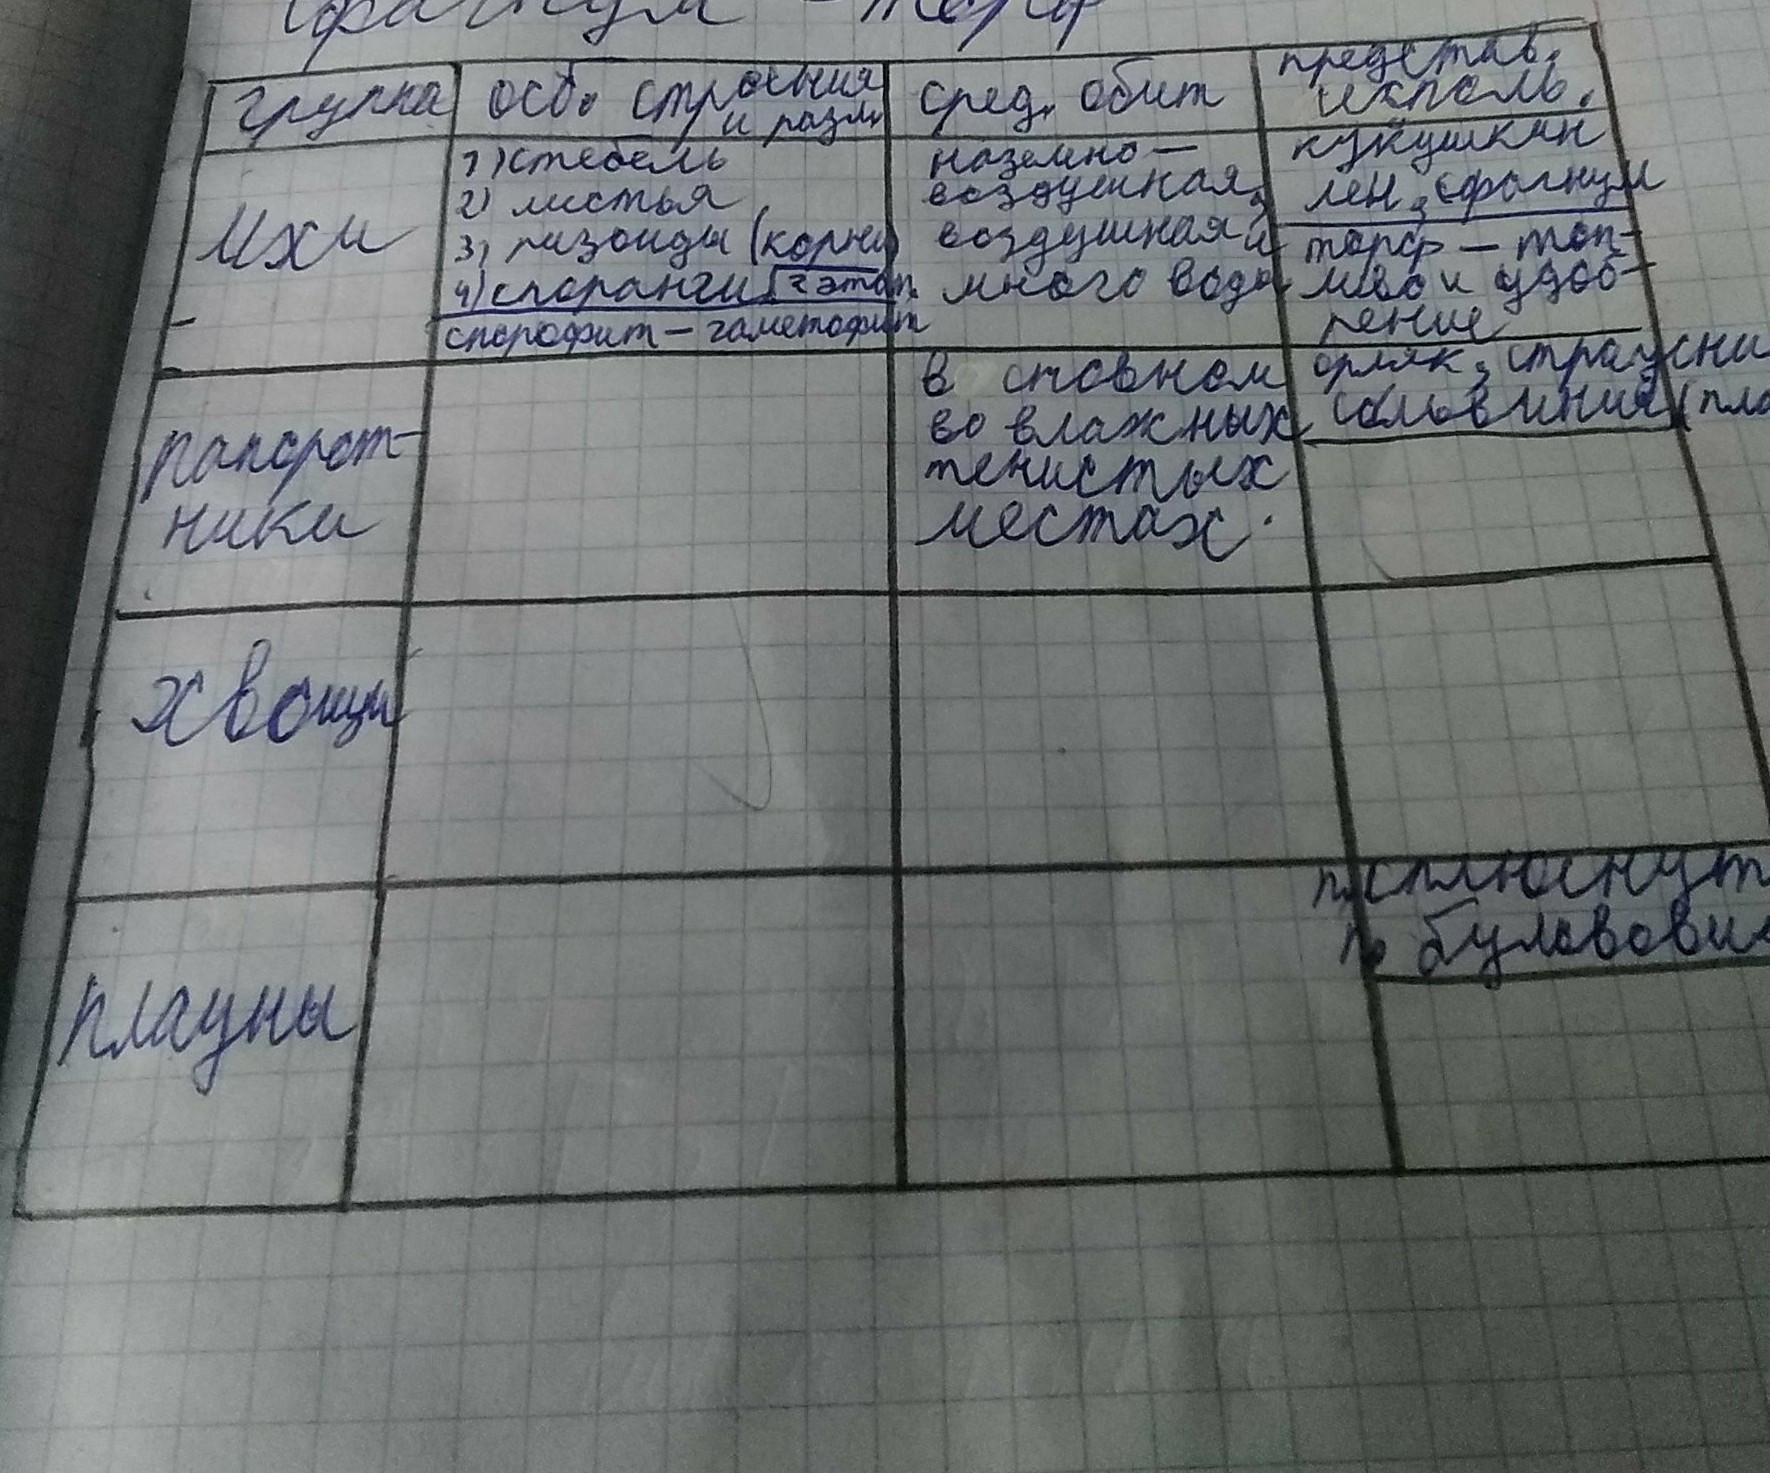 сфагнум - торф
группа
особ. строения
и разм.
сред. обит
представ.
исполь.
мхи
1) стебель
2) листья
3) ризоиды (корни)
4) споранги 2 этап.
спорофит – гаметофит
наземно –
воздушная,
воздушная и
много воды
кукушкин
лен, сфагнум
торф – топ-
ливо и удоб-
рение
папорот-
ники
в оновном
во влажных
тенистых
местах.
орляк, страусни
сальвиния (пла
хвощи
плауны
п. сплюснут
п. булавови